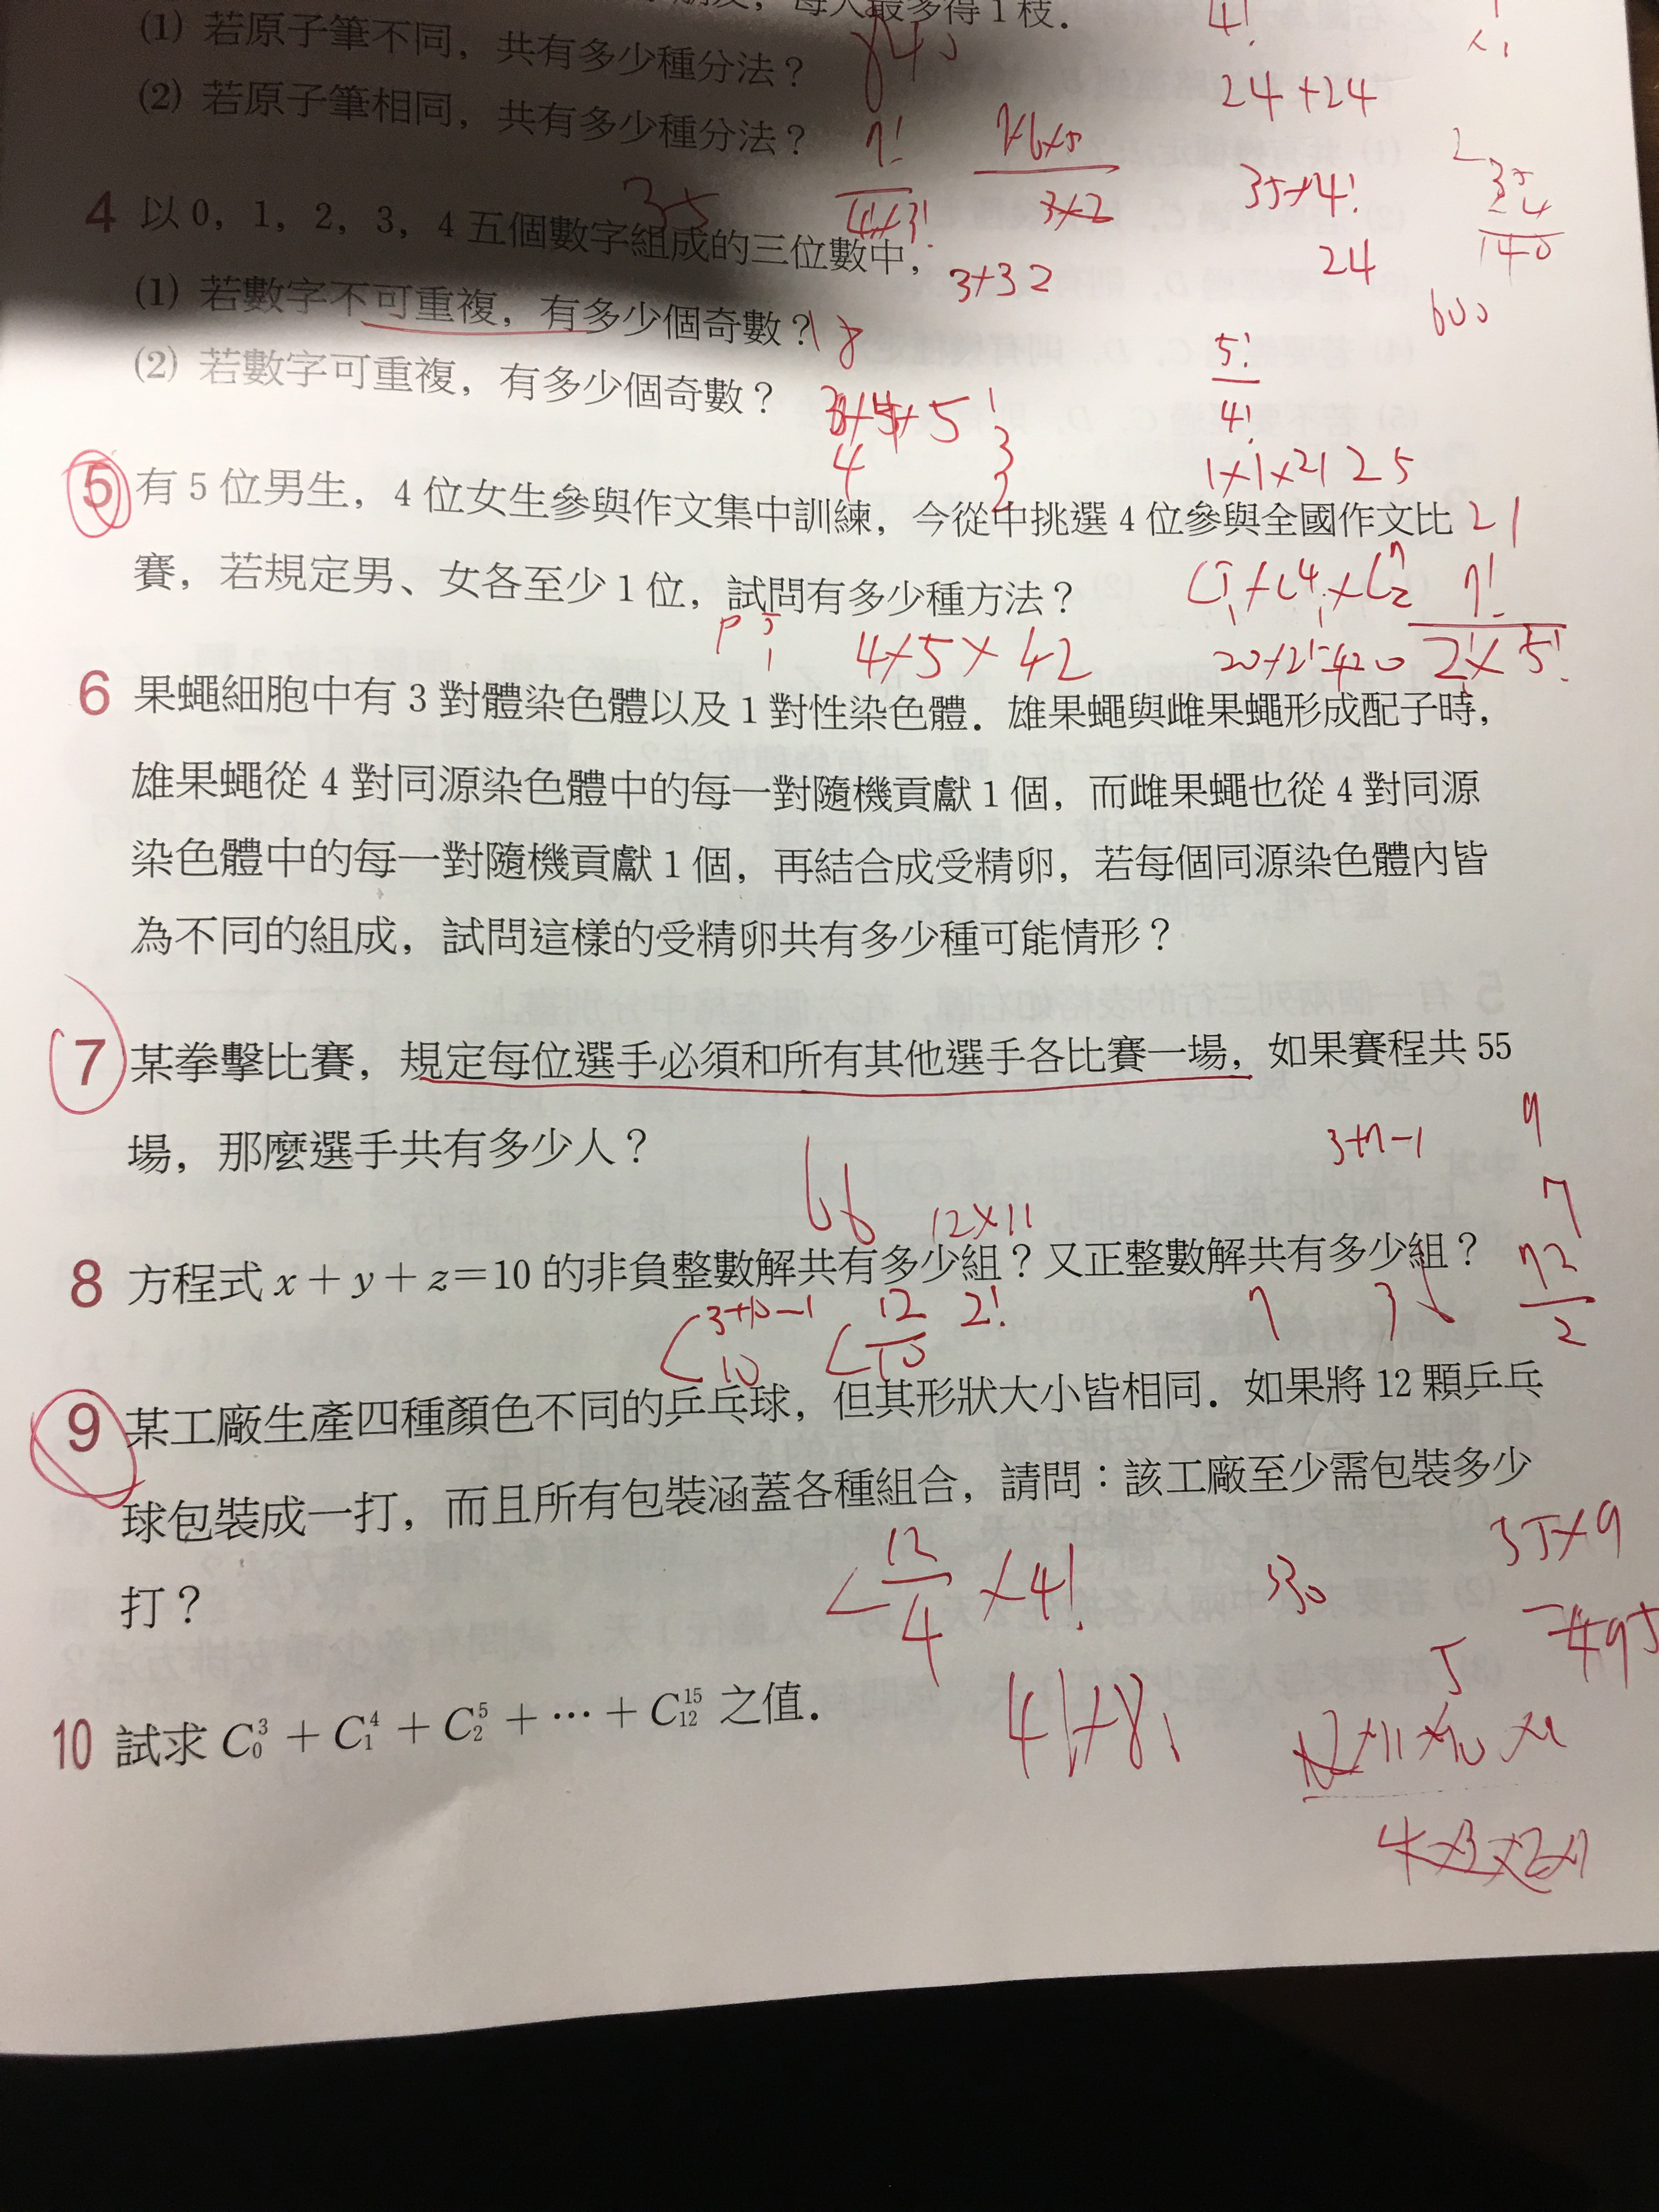 每人最多得1枝.
(1) 若原子筆不同，共有多少種分法？
(2) 若原子筆相同，共有多少種分法？
4!
24+24
7!
4!×3!
3×2
35×4!
24
35
140
600
35
4 以 0，1，2，3，4 五個數字組成的三位數中，
3×3 2
(1) 若數字不可重複，有多少個奇數？18
(2) 若數字可重複，有多少個奇數？
5!
4!
1×1×21 25
5 有 5 位男生，4 位女生參與作文集中訓練，今從中挑選 4 位參與全國作文比 21
賽，若規定男、女各至少 1 位，試問有多少種方法？
7!
2!×5!
4×5×42
20×21=420
6 果蠅細胞中有 3 對體染色體以及 1 對性染色體．雄果蠅與雌果蠅形成配子時，
雄果蠅從 4 對同源染色體中的每一對隨機貢獻 1 個，而雌果蠅也從 4 對同源
染色體中的每一對隨機貢獻 1 個，再結合成受精卵，若每個同源染色體內皆
為不同的組成，試問這樣的受精卵共有多少種可能情形？
7 某拳擊比賽，規定每位選手必須和所有其他選手各比賽一場，如果賽程共 55
場，那麼選手共有多少人？
3+7-1
9
7
72
2
66
12×11
8 方程式 x＋y＋z＝10 的非負整數解共有多少組？又正整數解共有多少組？
C 3+10-1 10
C 12 10
2!
7
36
9 某工廠生產四種顏色不同的乒乓球，但其形狀大小皆相同．如果將 12 顆乒乓
球包裝成一打，而且所有包裝涵蓋各種組合，請問：該工廠至少需包裝多少
打？
C 12 4 ×4!
330
35×9
495
4!×8!
5
10 試求 C₀³＋C₁⁴＋C₂⁵＋⋯＋C₁₂¹⁵ 之值．
4×3×2×1